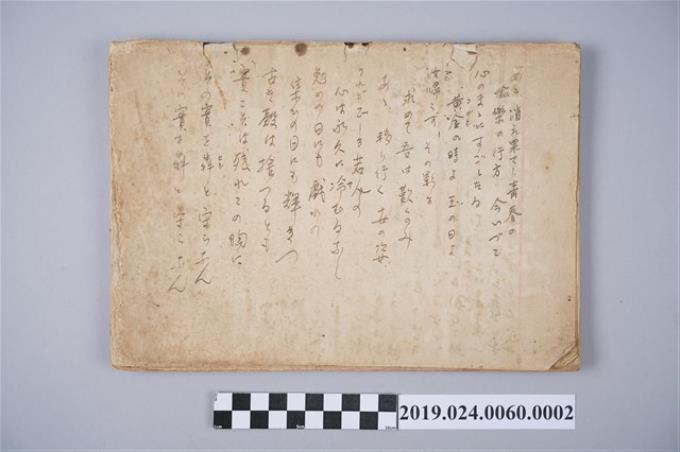 あゝ消え果てし青春の
愉樂の行方今いづこ
心のまゝにすごしたる
黄金の時よ玉の日よ
汝帰らずその影を
求めて吾は歎くのみ
あゝ移り行く世の姿
うれひしき若人の
心は永久に冷むるなし
勉めの日にも戯れの
集ひの日にも輝きつ
古き殿は捨つるとも
實こそは残れての胸に
その實を犇と守らなん
その實を犇と守らなん
2019.024.0060.0002